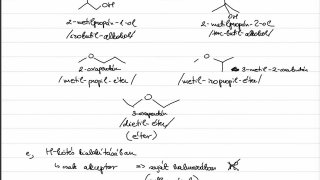 OH
OH
2-metilpropán-1-ol
2-metilpropán-2-ol
/izobutil-alkohol/
/terc-butil-alkohol/
O
O
2-oxapentán
3-metil-2-oxabután
/metil-propil-éter/
/metil-izopropil-éter/
O
3-oxapentán
/dietil-éter/
(éter)
e, H-kötés kialakításában
csak akceptor ⇒ saját halmazában